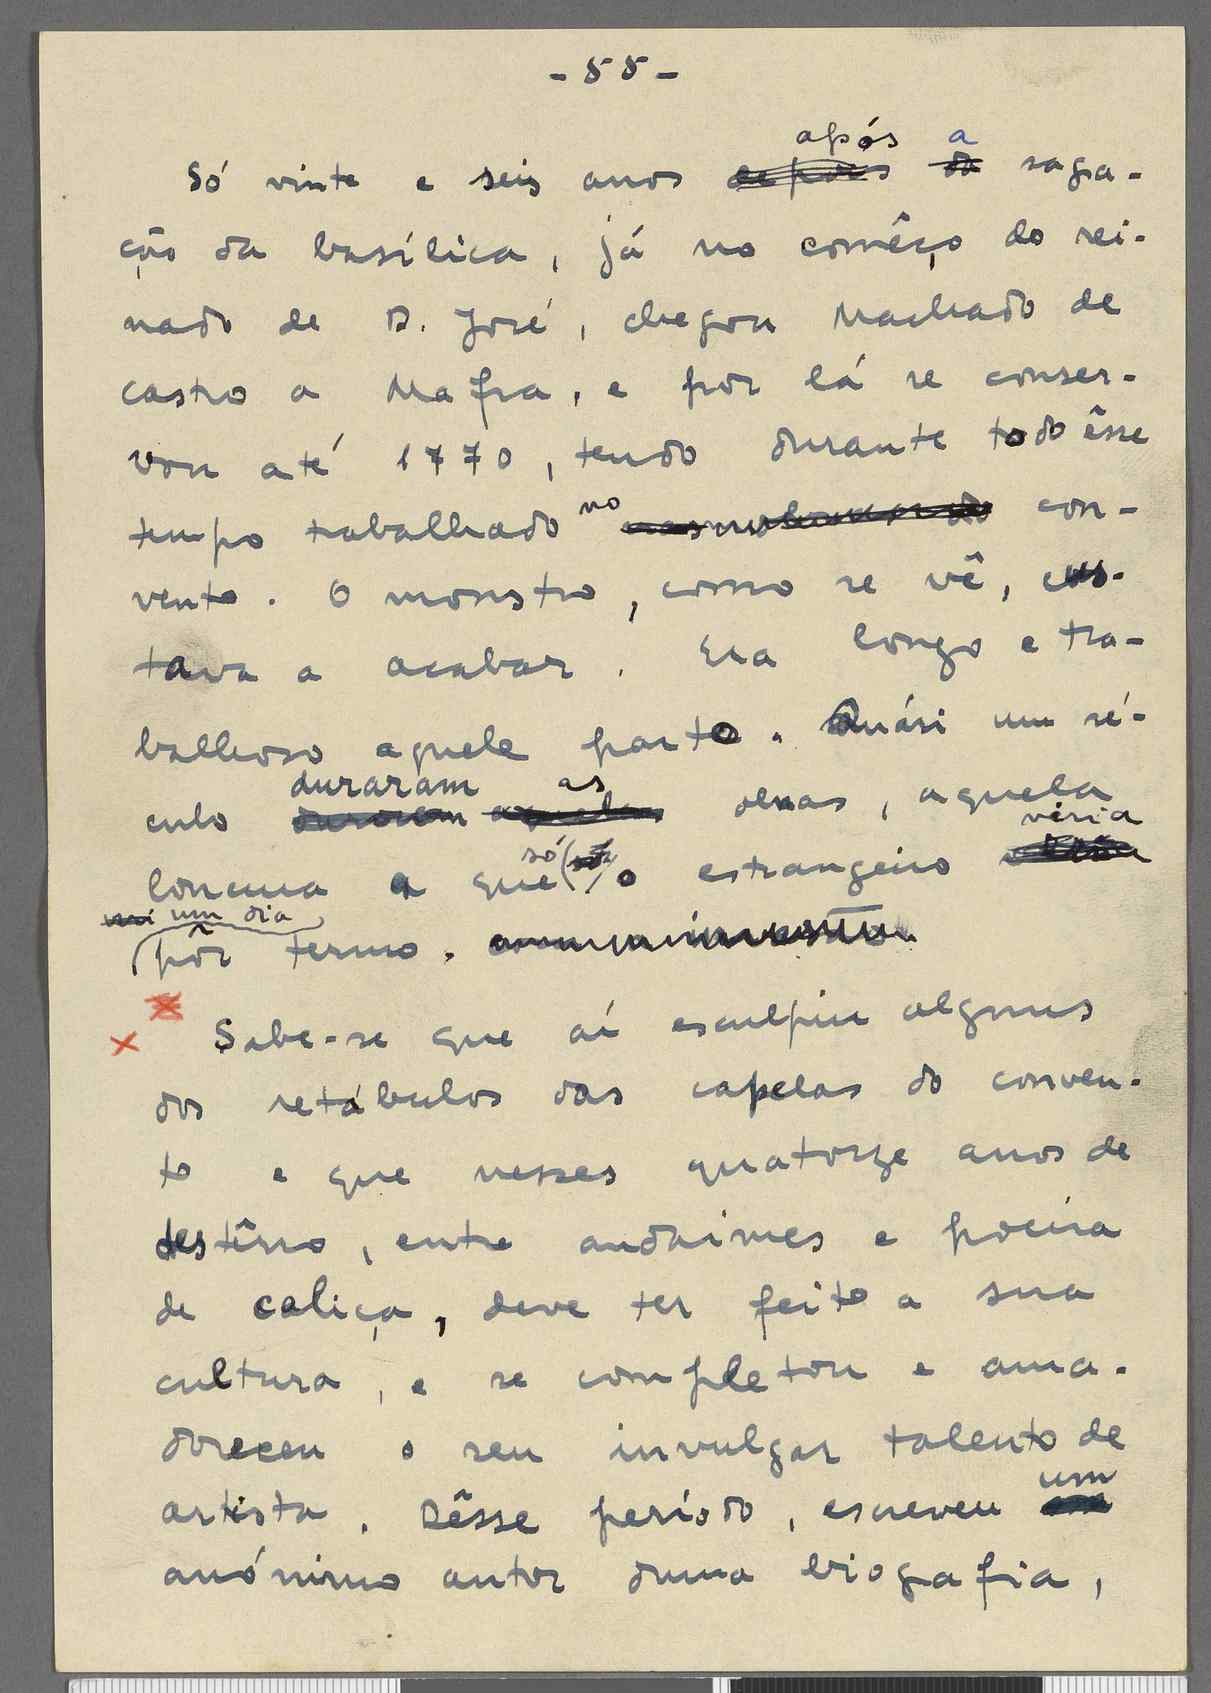 - 55 -
após a
Só vinte e seis anos depois da sagra-
ção da basílica, já no comêço do rei-
nado de D. José, chegou Machado de
Castro a Mafra, e por lá se conser-
vou até 1770, tendo durante todo êsse
tempo trabalhado no con-
vento. O monstro, como se vê, cus-
tava a acabar. Era longo e tra-
balhoso aquele parto. Quási um sé-
duraram as
culo duraram aquelas obras, aquela
só viria
loucura a que o estrangeiro
um dia
pôr termo.
Sabe-se que aí esculpiu alguns
dos retábulos das capelas do conven-
to e que nesses quatorze anos de
destêrro, entre andaimes e poeira
de caliça, deve ter feito a sua
cultura, e se completou e ama-
dureceu o seu invulgar talento de
um
artista. Dêsse período, escreveu
anónimo autor duma biografia,